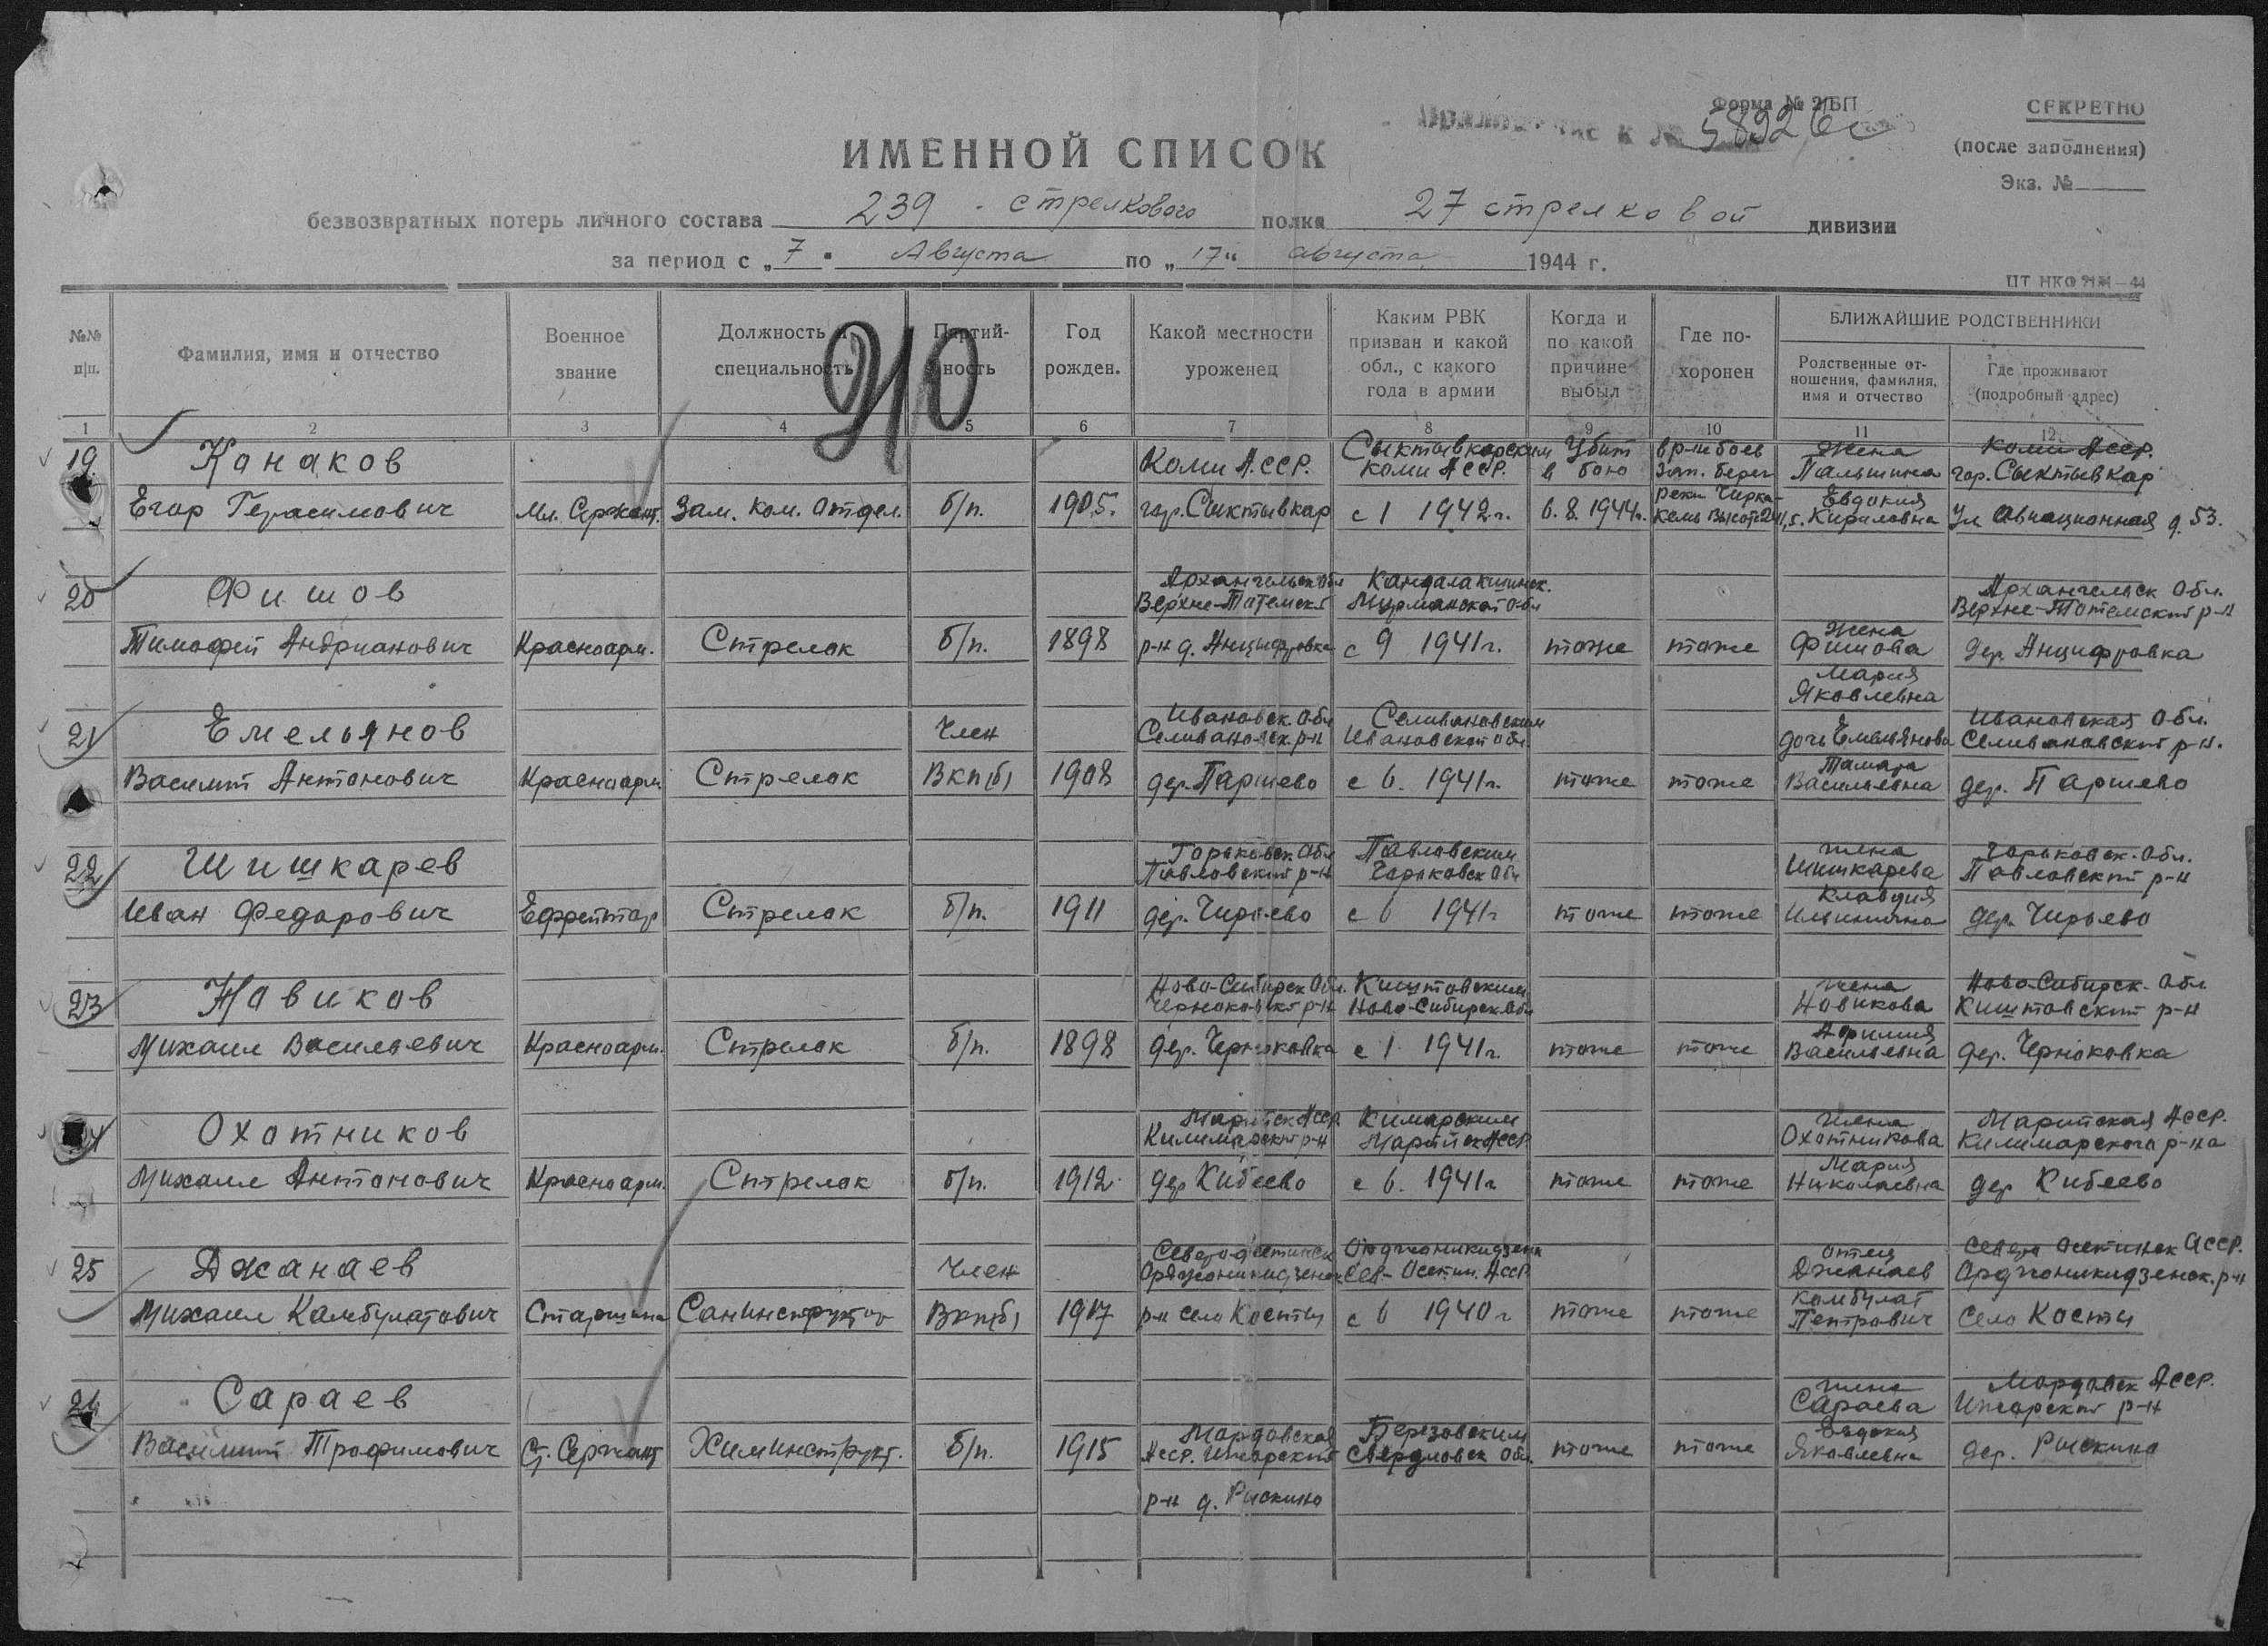 Форма № 2/БП
СЕКРЕТНО
Приложение к № 5892
(после заполнения)
Экз. №
ИМЕННОЙ СПИСОК
безвозвратных потерь личного состава 239 стрелкового полка 27 стрелковой дивизии
за период с „7" Августа по „17" августа 1944 г.
910
№№ п/п. Фамилия, имя и отчество Военное звание Должность и специальность Партийность Год рожден. Какой местности уроженец Каким РВК призван и какой обл., с какого года в армии Когда и по какой причине выбыл Где похоронен БЛИЖАЙШИЕ РОДСТВЕННИКИ
Родственные отношения, фамилия, имя и отчество Где проживают (подробный адрес)
1 2 3 4 5 6 7 8 9 10 11 12
19 Канаков Коми АССР. Сыктывкарским Коми АССР. Убит в бою в р-не боев зап. берег Жена Пальшина Коми АССР. гор. Сыктывкар
Егор Герасимович Мл. Сержант. Зам. Ком. Отдел. б/п. 1905. гор. Сыктывкар с 1 1942 г. 6.8.1944 г. реки Чирка-Кемь Высота Евдокия Кириловна Ул Авиационная д. 53.
20 Фишов Архангельск Обл Верхне-Тотемский Кандалакшинск. Мурманской обл Архангельск Обл. Верхне-Тотемский р-н
Тимофей Андрианович Красноарм. Стрелок б/п. 1898 р-н д. Анцифровка с 9 1941 г. тоже тоже Жена Фишова Мария Яковлевна дер. Анцифровка
21 Емельянов Член Ивановск. Обл Селивановск. р-н Селивановским Ивановской обл. дочь Емельянова Ивановская Обл. Селивановский р-н.
Василий Антонович Красноарм. Стрелок ВКП(б) 1908 дер. Паршево с 6. 1941 г. тоже тоже Тамара Васильевна дер. Паршево
22 Шишкарев Горьковск. Обл Павловский р-н Павловским Горьковск Обл жена Шишкарева Горьковск. Обл. Павловский р-н
Иван Федорович Ефрейтор Стрелок б/п. 1911 дер. Чирьево с 6 1941 г тоже тоже Клавдия Ильинична дер. Чирьево
23 Новиков Ново-Сибирск Обл. р-н Киштовским Ново-Сибирск Обл жена Новикова Ново-Сибирск. Обл Киштовский р-н
Михаил Васильевич Красноарм. Стрелок б/п. 1898 дер. Черноковка с 1 1941 г. тоже тоже Васильевна дер. Черноковка
Охотников Марийск АССР. Килимарский р-н Кимарским Марийск АССР жена Охотникова Марийская АССР. Килимарского р-на
Михаил Антонович Красноарм. Стрелок б/п. 1912 дер Кибеево с 6. 1941 г тоже тоже Мария Николаевна дер Кибеево
25 Джанаев Член Орджоникидзенск Сев- Осетин. АССР отец Джанаев Северо Осетинск АССР. Орджоникидзенск. р-н
Михаил Камбулатович Старшина Санинструктор ВКП(б) 1917 р-н село Косты с 6 1940 г тоже тоже Камбулат Петрович Село Косты
26 Сараев жена Сараева Мордовск АССР. Инсарский р-н
Василий Трофимович Ст. Сержант Химинструкт. б/п. 1915 Мордовская АССР. Инсарский Березовским Свердловск Обл. тоже тоже Евдокия Яковлевна дер. Рыскино
р-н д. Рыскино